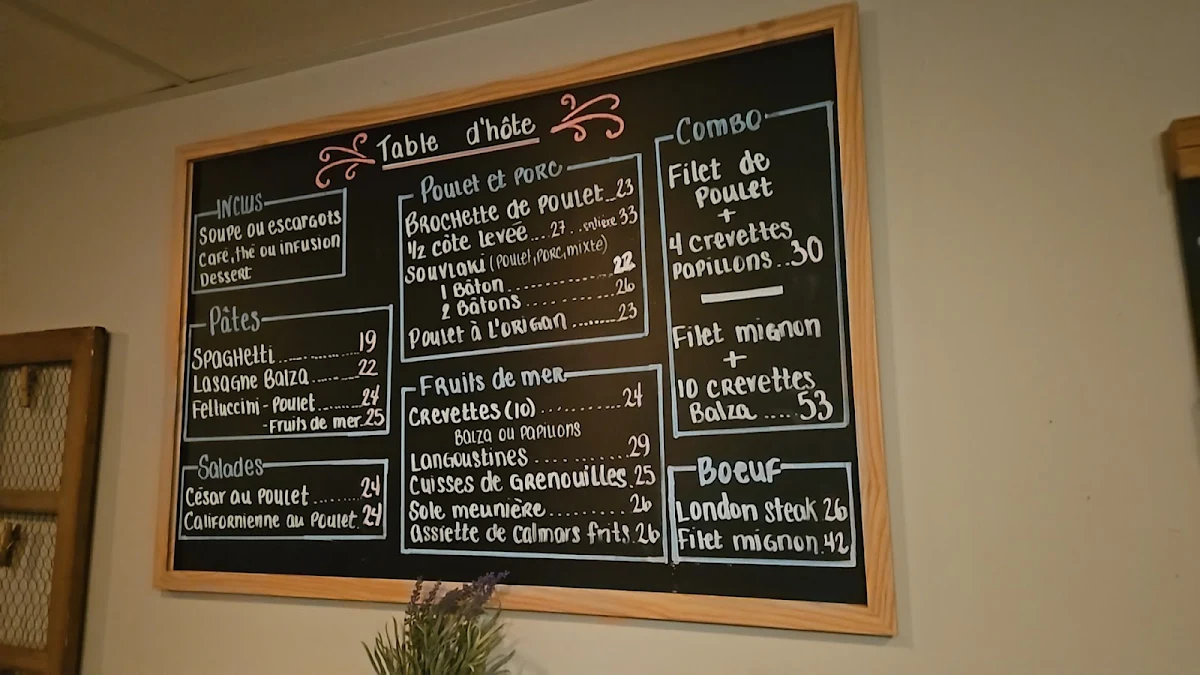 Table d'hôte
Inclus
Soupe ou escargots
Café, thé ou infusion
Dessert
Pâtes
Spaghetti............19
Lasagne Balza........22
Felluccini - Poulet........24
- Fruits de mer..25
Salades
César au Poulet........24
Californienne au Poulet.24
Poulet et porc
Brochette de Poulet...23
1/2 côte levée....27...entière 33
Souvlaki (Poulet, Porc, mixte)
1 Bâton...............22
2 Bâtons..............26
Poulet à l'origan........23
Fruits de mer
Crevettes (10)..........24
Balza ou Papillons
Langoustines..........29
Cuisses de Grenouilles.25
Sole meunière.........26
Assiette de calmars frits.26
Combo
Filet de
Poulet
+
4 crevettes
Papillons...30
Filet mignon
+
10 crevettes
Balza....53
Boeuf
London steak 26
Filet mignon.42